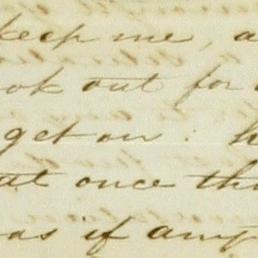 keep me, a
ook out for
get on : h
at once th
as if any